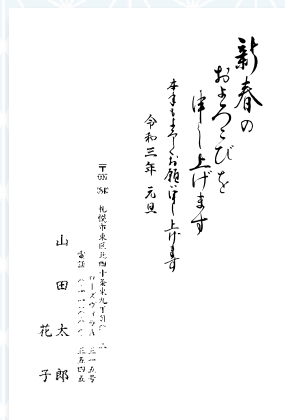 新春の
およろこびを
申し上げます
本年もよろしくお願い申し上げます
令和三年 元旦
〒
札幌市東区北四十条東九丁目
ローズヴィラ 三一五号
電話
山田太郎
花子